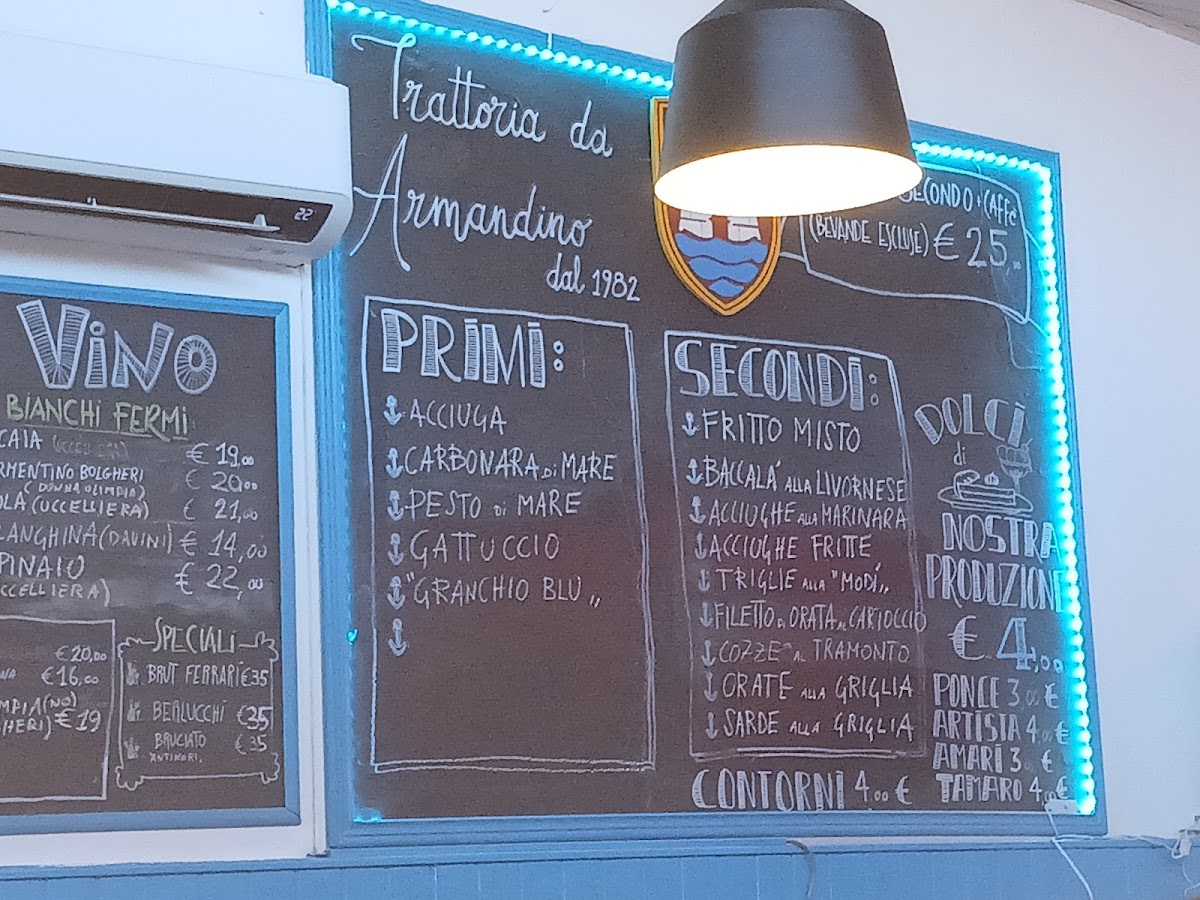 Trattoria da
Armandino
dal 1982
SECONDO + CAFFÈ
(BEVANDE ESCLUSE) € 25,00
22
VINO
BIANCHI FERMI
€ 19,00
BOLGHERI € 20,00
(DONNA OLIMPIA)
(UCCELLIERA) € 21,00
(DAVINI) € 14,00
€ 22,00
€20,00
€16,00
€19
SPECIALI
BRUT FERRARI €35
BERLUCCHI €35
BRUCIATO €35
ANTINORI.
PRIMI:
ACCIUGA
CARBONARA di MARE
PESTO di MARE
GATTUCCIO
"GRANCHIO BLU"
SECONDI:
FRITTO MISTO
BACCALÁ ALLA LIVORNESE
ACCIUGHE ALLA MARINARA
ACCIUGHE FRITTE
TRIGLIE ALLA "MODÍ"
FILETTO di ORATA AL CARTOCCIO
COZZE AL TRAMONTO
ORATE ALLA GRIGLIA
SARDE ALLA GRIGLIA
CONTORNI 4,00 €
DOLCI
di
NOSTRA
PRODUZIONE
€ 4,00
PONCE 3,00 €
ARTISTA 4,00 €
AMARI 3,00 €
TAMARO 4,00 €